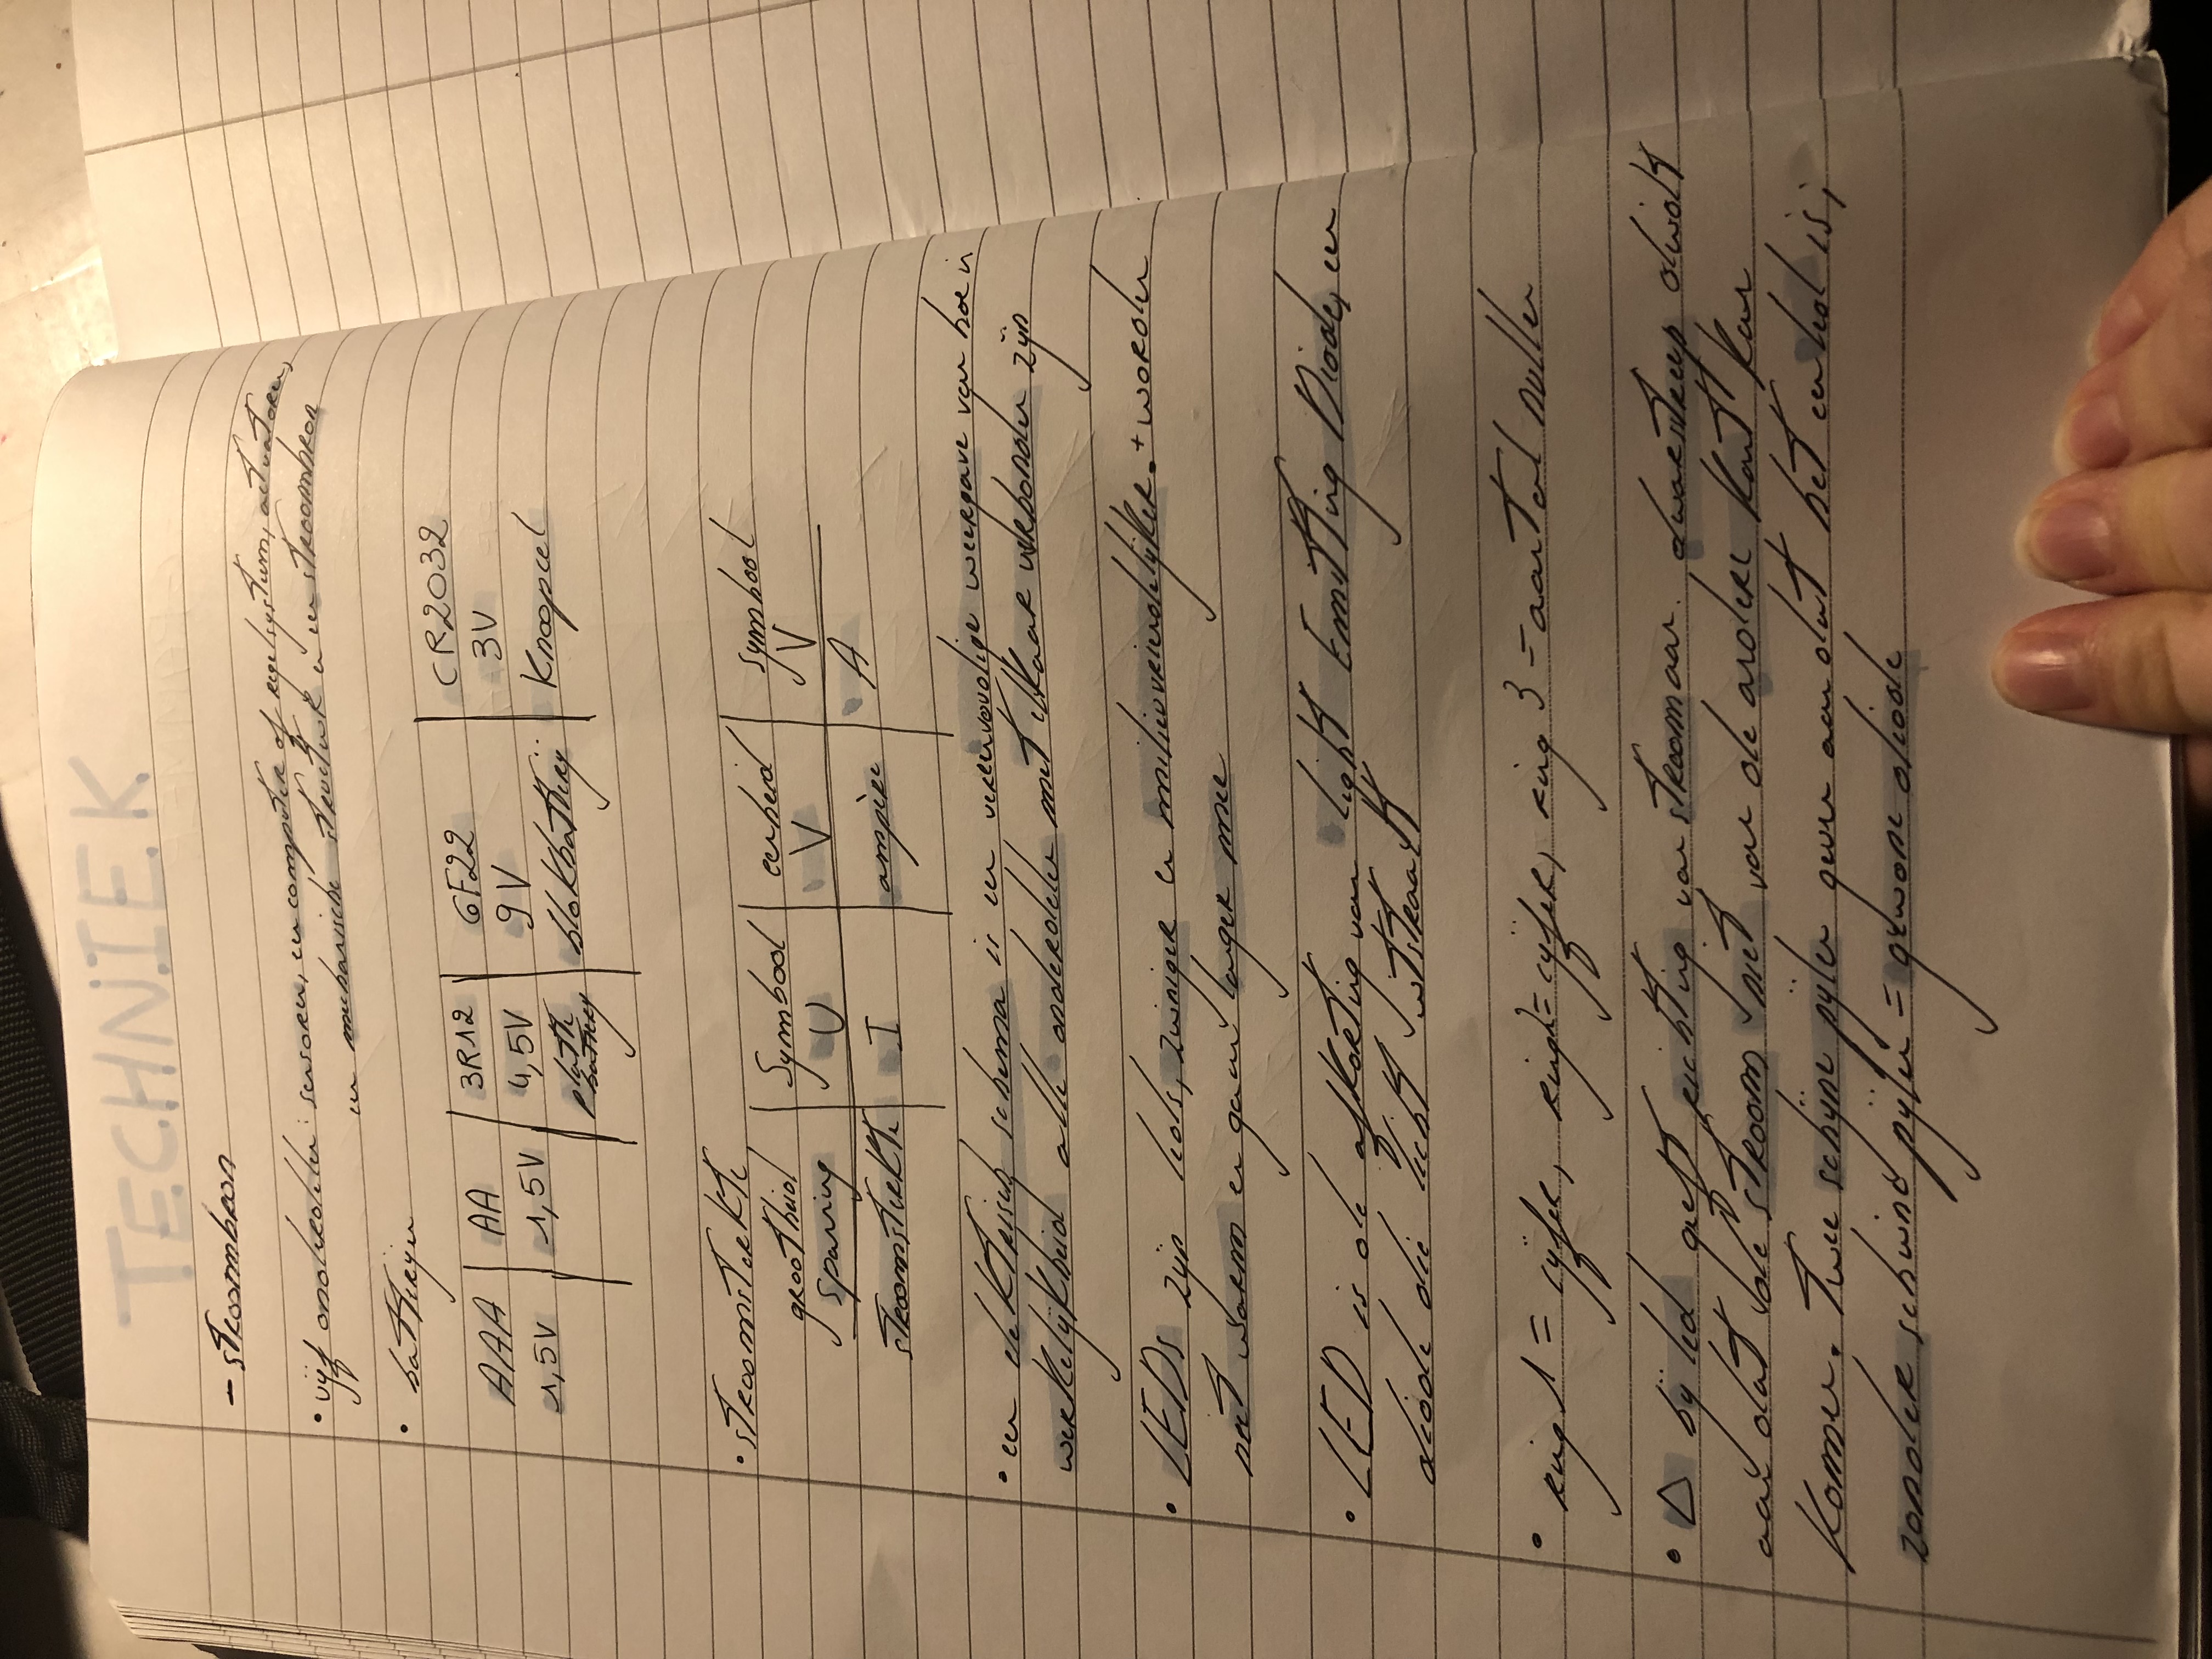 TECHNIEK
- stroombron
• vijf onderdelen: sensoren, een computer of regelsysteem, actuatoren,
een mechanische structuur en een stroombron
• batterijen
AAA | AA | 3R12 | 6F22 | CR2032
1,5V | 1,5V | 4,5V | 9V | 3V
platte batterij | blokbatterij | Knoopcel
• stroomsterkte
grootheid | Symbool | eenheid | symbool
spanning | U | V | V
stroomsterkte | I | ampère | A
• een elektrisch schema is een vereenvoudige weergave van hoe in
werkelijkheid alle onderdelen met elkaar verbonden zijn
• LEDs zijn leds, zuiniger en milieuvriendelijker. + worden
niet warm en gaan langer mee
• LED is de afkorting van light Emitting Diode, een
diode die licht uitstraalt
• ring 1 = cijfer, ring 2 = cijfer, ring 3 = aantal nullen
• △ bij led geeft richting van stroom aan. dwarsstreep duidt
aan dat de stroom niet van de andere kant kan
komen. twee schijne pijlen geven aan dat het een led is;
zonder schuine pijlen = gewone diode